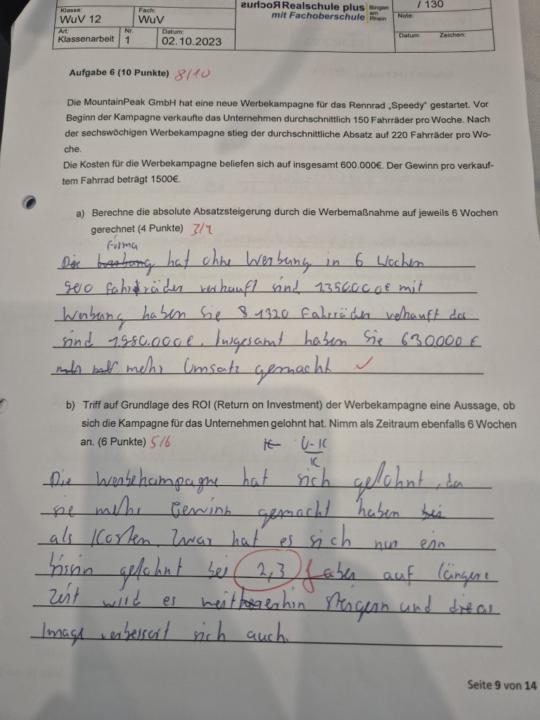 Klasse: Fach: / 130
WuV 12 WuV Rochus Realschule plus Bingen am Rhein Note:
Art: Nr. Datum: mit Fachoberschule
Klassenarbeit 1 02.10.2023 Datum: Zeichen:
Aufgabe 6 (10 Punkte) 8/10
Die MountainPeak GmbH hat eine neue Werbekampagne für das Rennrad „Speedy" gestartet. Vor
Beginn der Kampagne verkaufte das Unternehmen durchschnittlich 150 Fahrräder pro Woche. Nach
der sechswöchigen Werbekampagne stieg der durchschnittliche Absatz auf 220 Fahrräder pro Wo-
che.
Die Kosten für die Werbekampagne beliefen sich auf insgesamt 600.000€. Der Gewinn pro verkauf-
tem Fahrrad beträgt 1500€.
a) Berechne die absolute Absatzsteigerung durch die Werbemaßnahme auf jeweils 6 Wochen
gerechnet (4 Punkte)
Firma
Die hat ohne Werbung in 6 Wochen
900 Fahrräder verkauft sind 1350000€ mit
Werbung haben Sie 1320 Fahrräder verkauft da
sind 1.980.000€. Insgesamt haben Sie 630000€
mehr Umsatz gemacht
b) Triff auf Grundlage des ROI (Return on Investment) der Werbekampagne eine Aussage, ob
sich die Kampagne für das Unternehmen gelohnt hat. Nimm als Zeitraum ebenfalls 6 Wochen
an. (6 Punkte) 5/6
Die Werbekampagne hat sich gelohnt, da
sie mehr Gewinn gemacht haben
als Kosten. Zwar hat es sich nur ein
bissin gelohnt bei 2,3 aber auf längere
Zeit wird es weiterhin steigern und
Image verbessert sich auch.
Seite 9 von 14